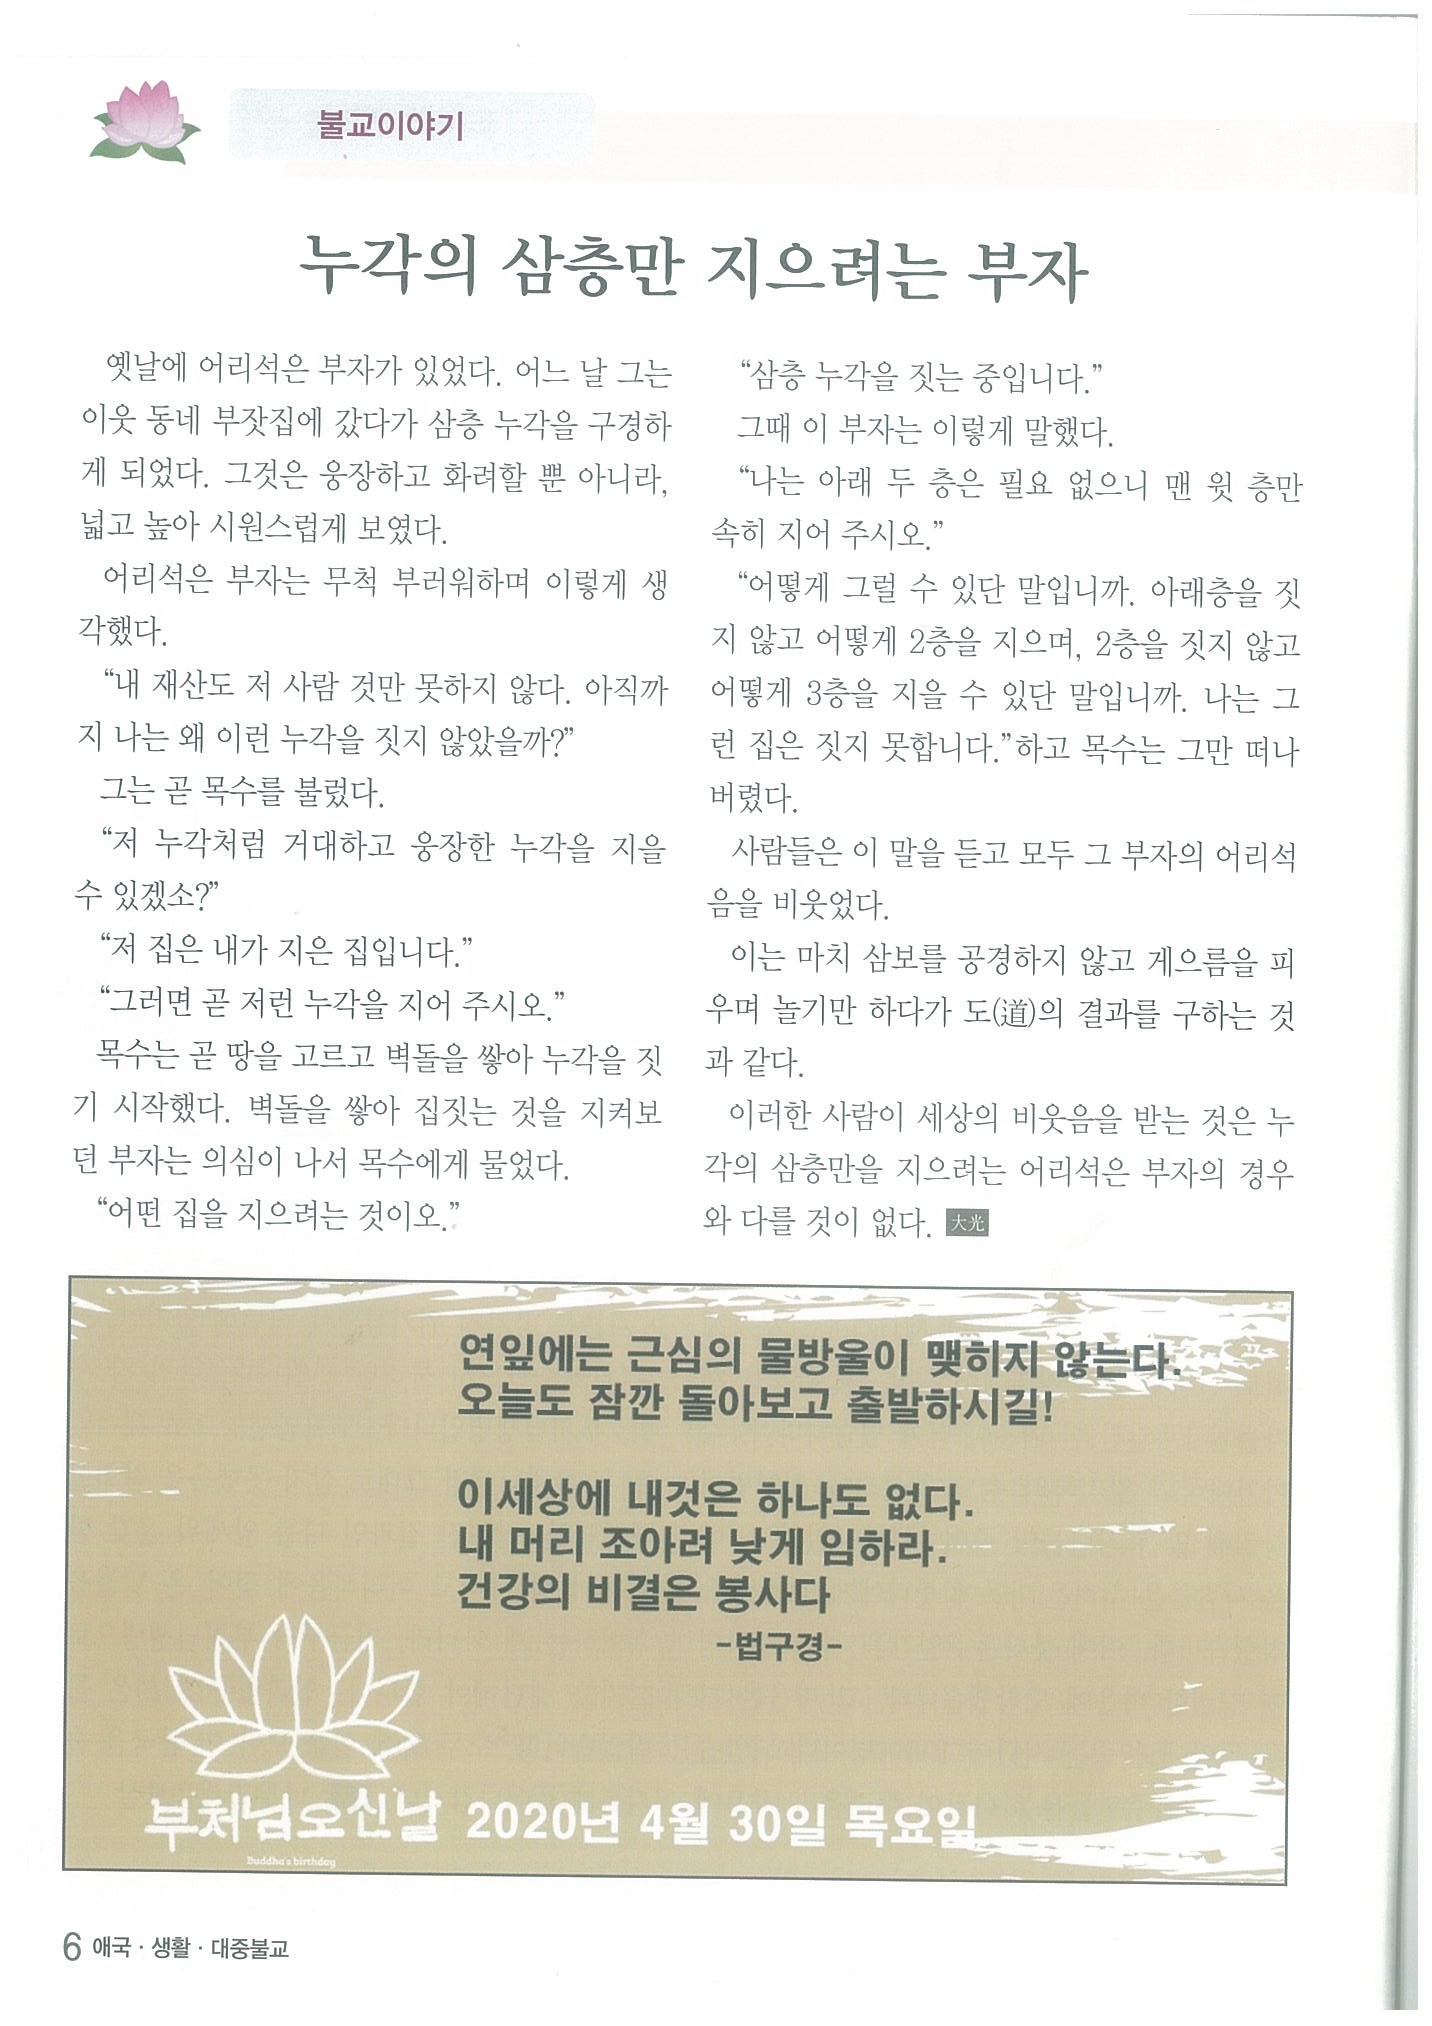 불교이야기
누각의 삼층만 지으려는 부자
옛날에 어리석은 부자가 있었다. 어느 날 그는
이웃 동네 부잣집에 갔다가 삼층 누각을 구경하
게 되었다. 그것은 웅장하고 화려할 뿐 아니라,
넓고 높아 시원스럽게 보였다.
어리석은 부자는 무척 부러워하며 이렇게 생
각했다.
“내 재산도 저 사람 것만 못하지 않다. 아직까
지 나는 왜 이런 누각을 짓지 않았을까?”
그는 곧 목수를 불렀다.
“저 누각처럼 거대하고 웅장한 누각을 지을
수 있겠소?”
“저 집은 내가 지은 집입니다.”
“그러면 곧 저런 누각을 지어 주시오.”
목수는 곧 땅을 고르고 벽돌을 쌓아 누각을 짓
기 시작했다. 벽돌을 쌓아 집짓는 것을 지켜보
던 부자는 의심이 나서 목수에게 물었다.
“어떤 집을 지으려는 것이오.”
“삼층 누각을 짓는 중입니다.”
그때 이 부자는 이렇게 말했다.
“나는 아래 두 층은 필요 없으니 맨 윗 층만
속히 지어 주시오.”
“어떻게 그럴 수 있단 말입니까. 아래층을 짓
지 않고 어떻게 2층을 지으며, 2층을 짓지 않고
어떻게 3층을 지을 수 있단 말입니까. 나는 그
런 집은 짓지 못합니다.”하고 목수는 그만 떠나
버렸다.
사람들은 이 말을 듣고 모두 그 부자의 어리석
음을 비웃었다.
이는 마치 삼보를 공경하지 않고 게으름을 피
우며 놀기만 하다가 도(道)의 결과를 구하는 것
과 같다.
이러한 사람이 세상의 비웃음을 받는 것은 누
각의 삼층만을 지으려는 어리석은 부자의 경우
와 다를 것이 없다. 大光
연잎에는 근심의 물방울이 맺히지 않는다.
오늘도 잠깐 돌아보고 출발하시길!
이세상에 내것은 하나도 없다.
내 머리 조아려 낮게 임하라.
건강의 비결은 봉사다
-법구경-
부처님오신날 2020년 4월 30일 목요일
Buddha's birthday
6 애국 · 생활 · 대중불교